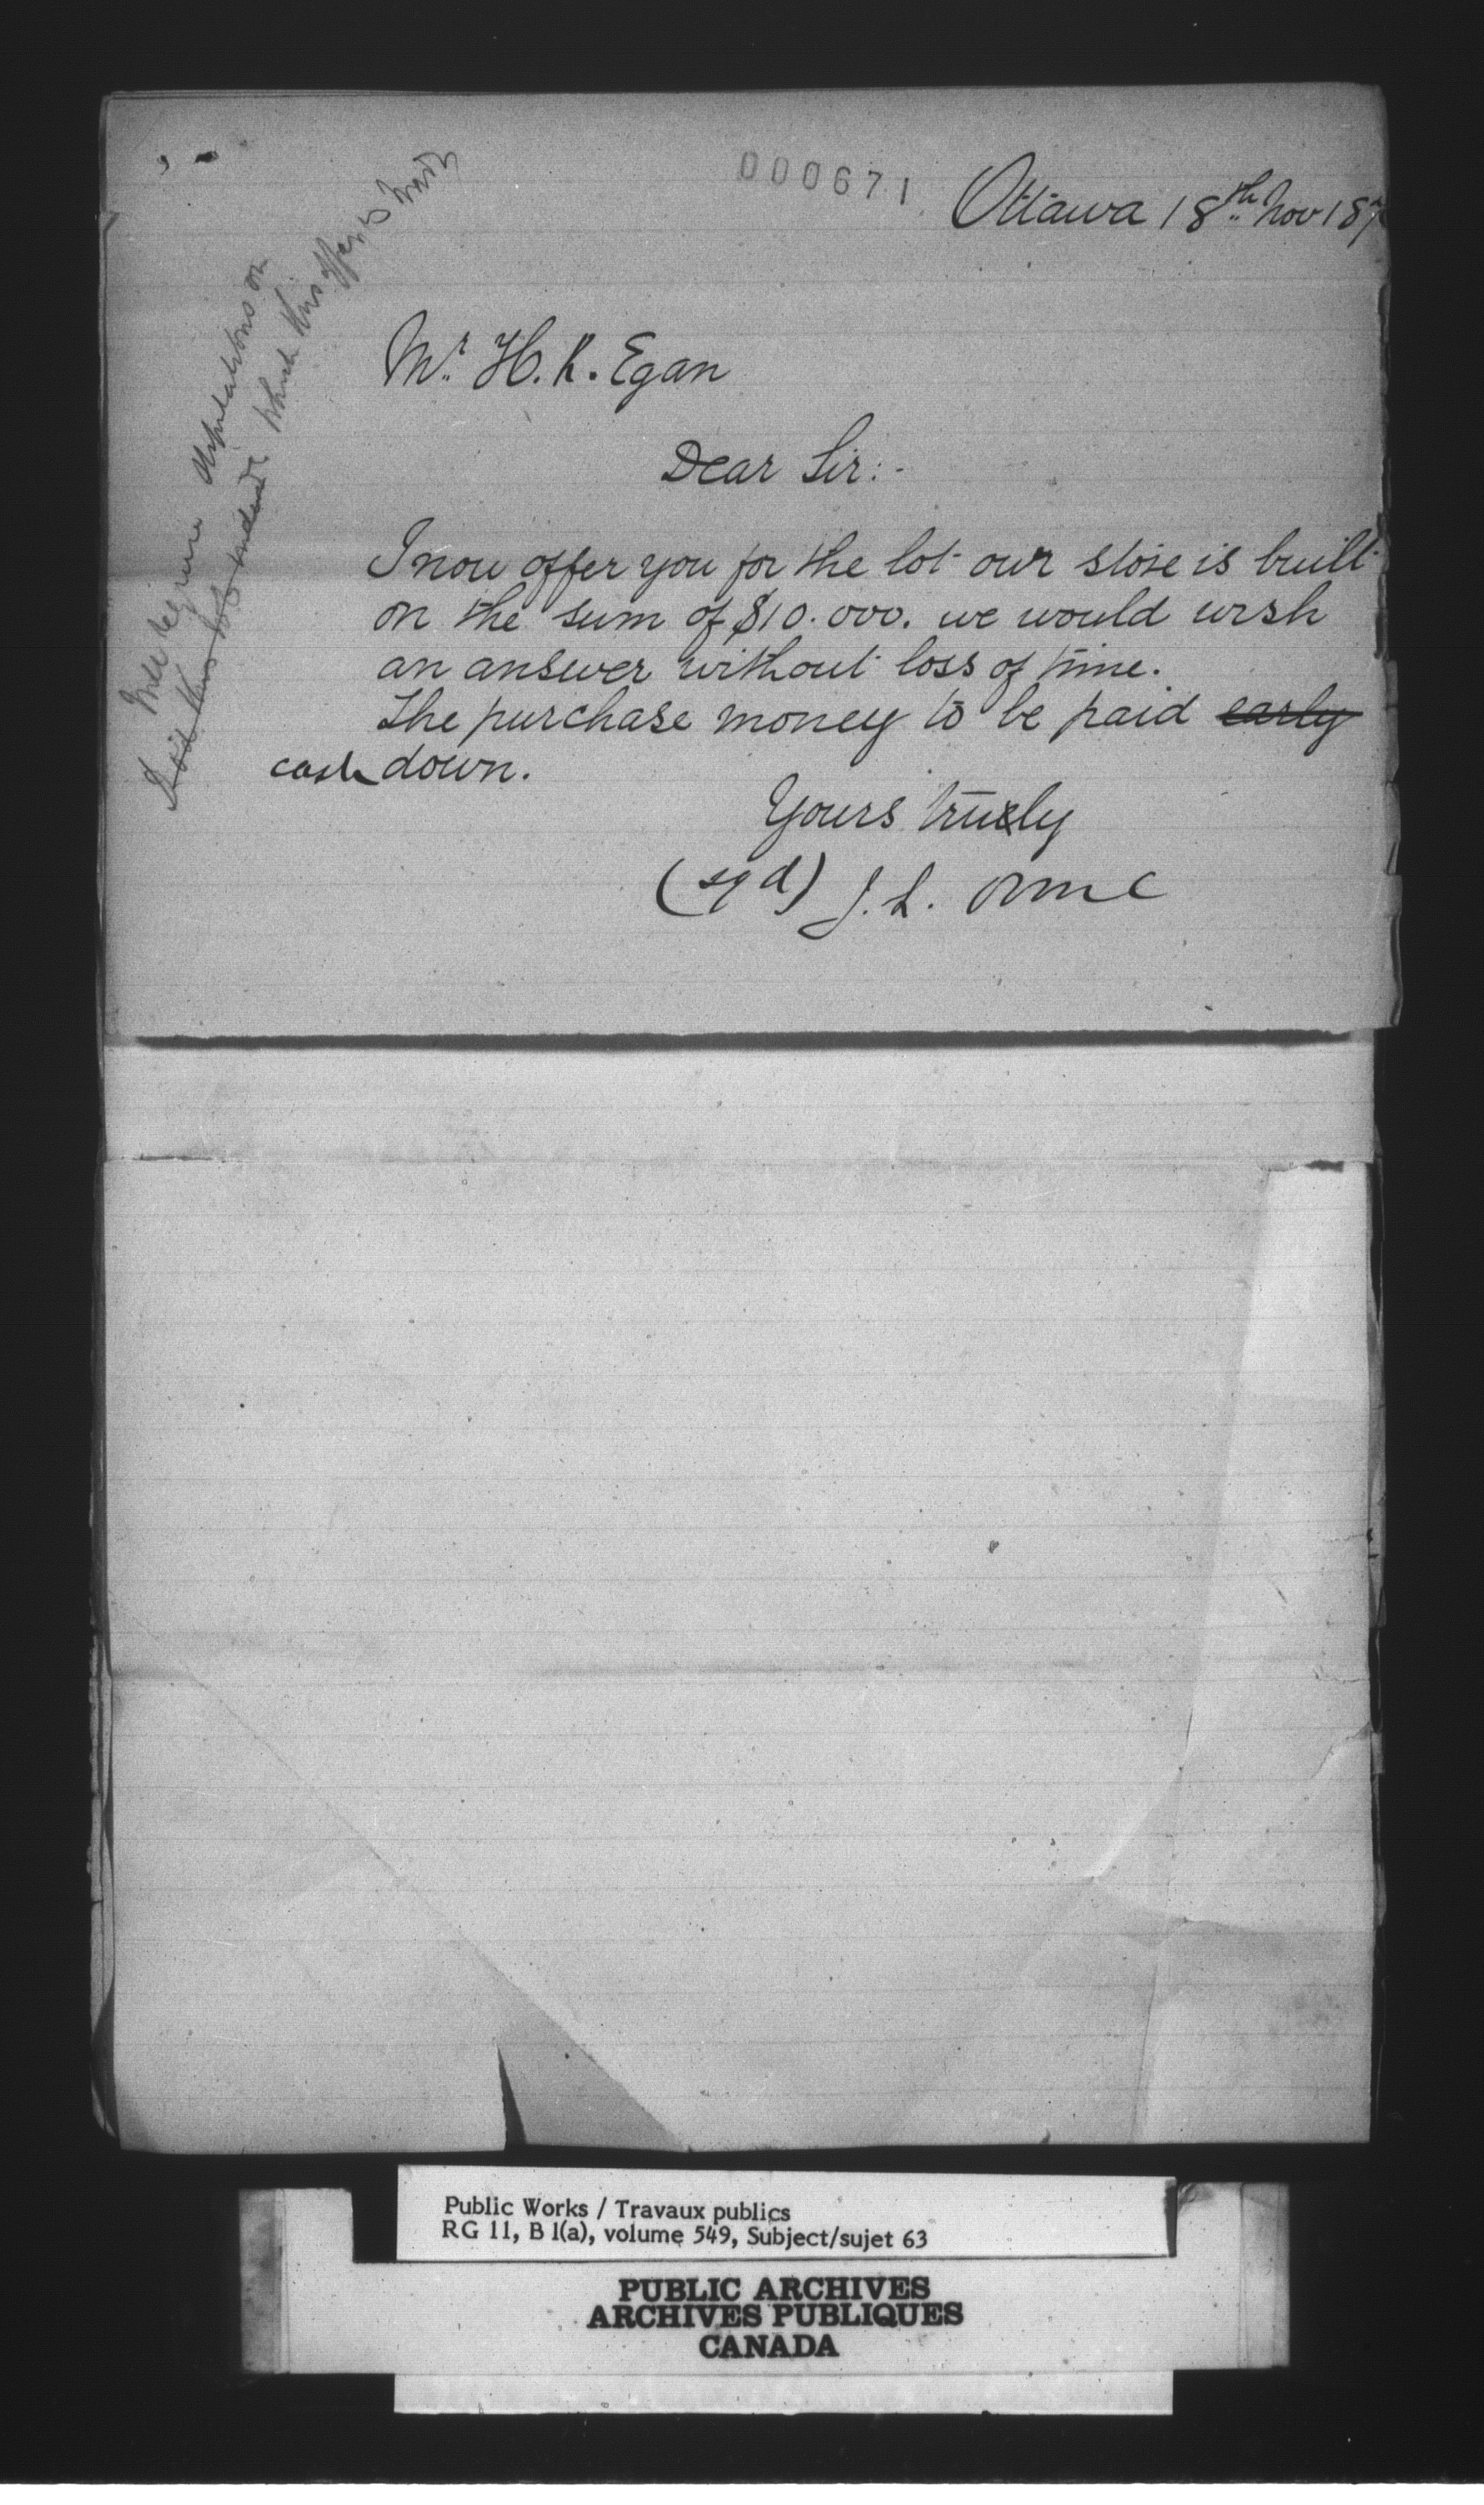 000671
Ottawa 18th Nov 187
Mr. H. K. Egan
Dear Sir:-
I now offer you for the lot our store is built
on the sum of $10.000. we would wish
an answer without loss of time.
The purchase money to be paid early
cash down.
Yours truely
(sgd) J. L. Orme
on
which this offer is made
Public Works / Travaux publics
RG 11, B 1(a), volume 549, Subject/sujet 63
PUBLIC ARCHIVES
ARCHIVES PUBLIQUES
CANADA